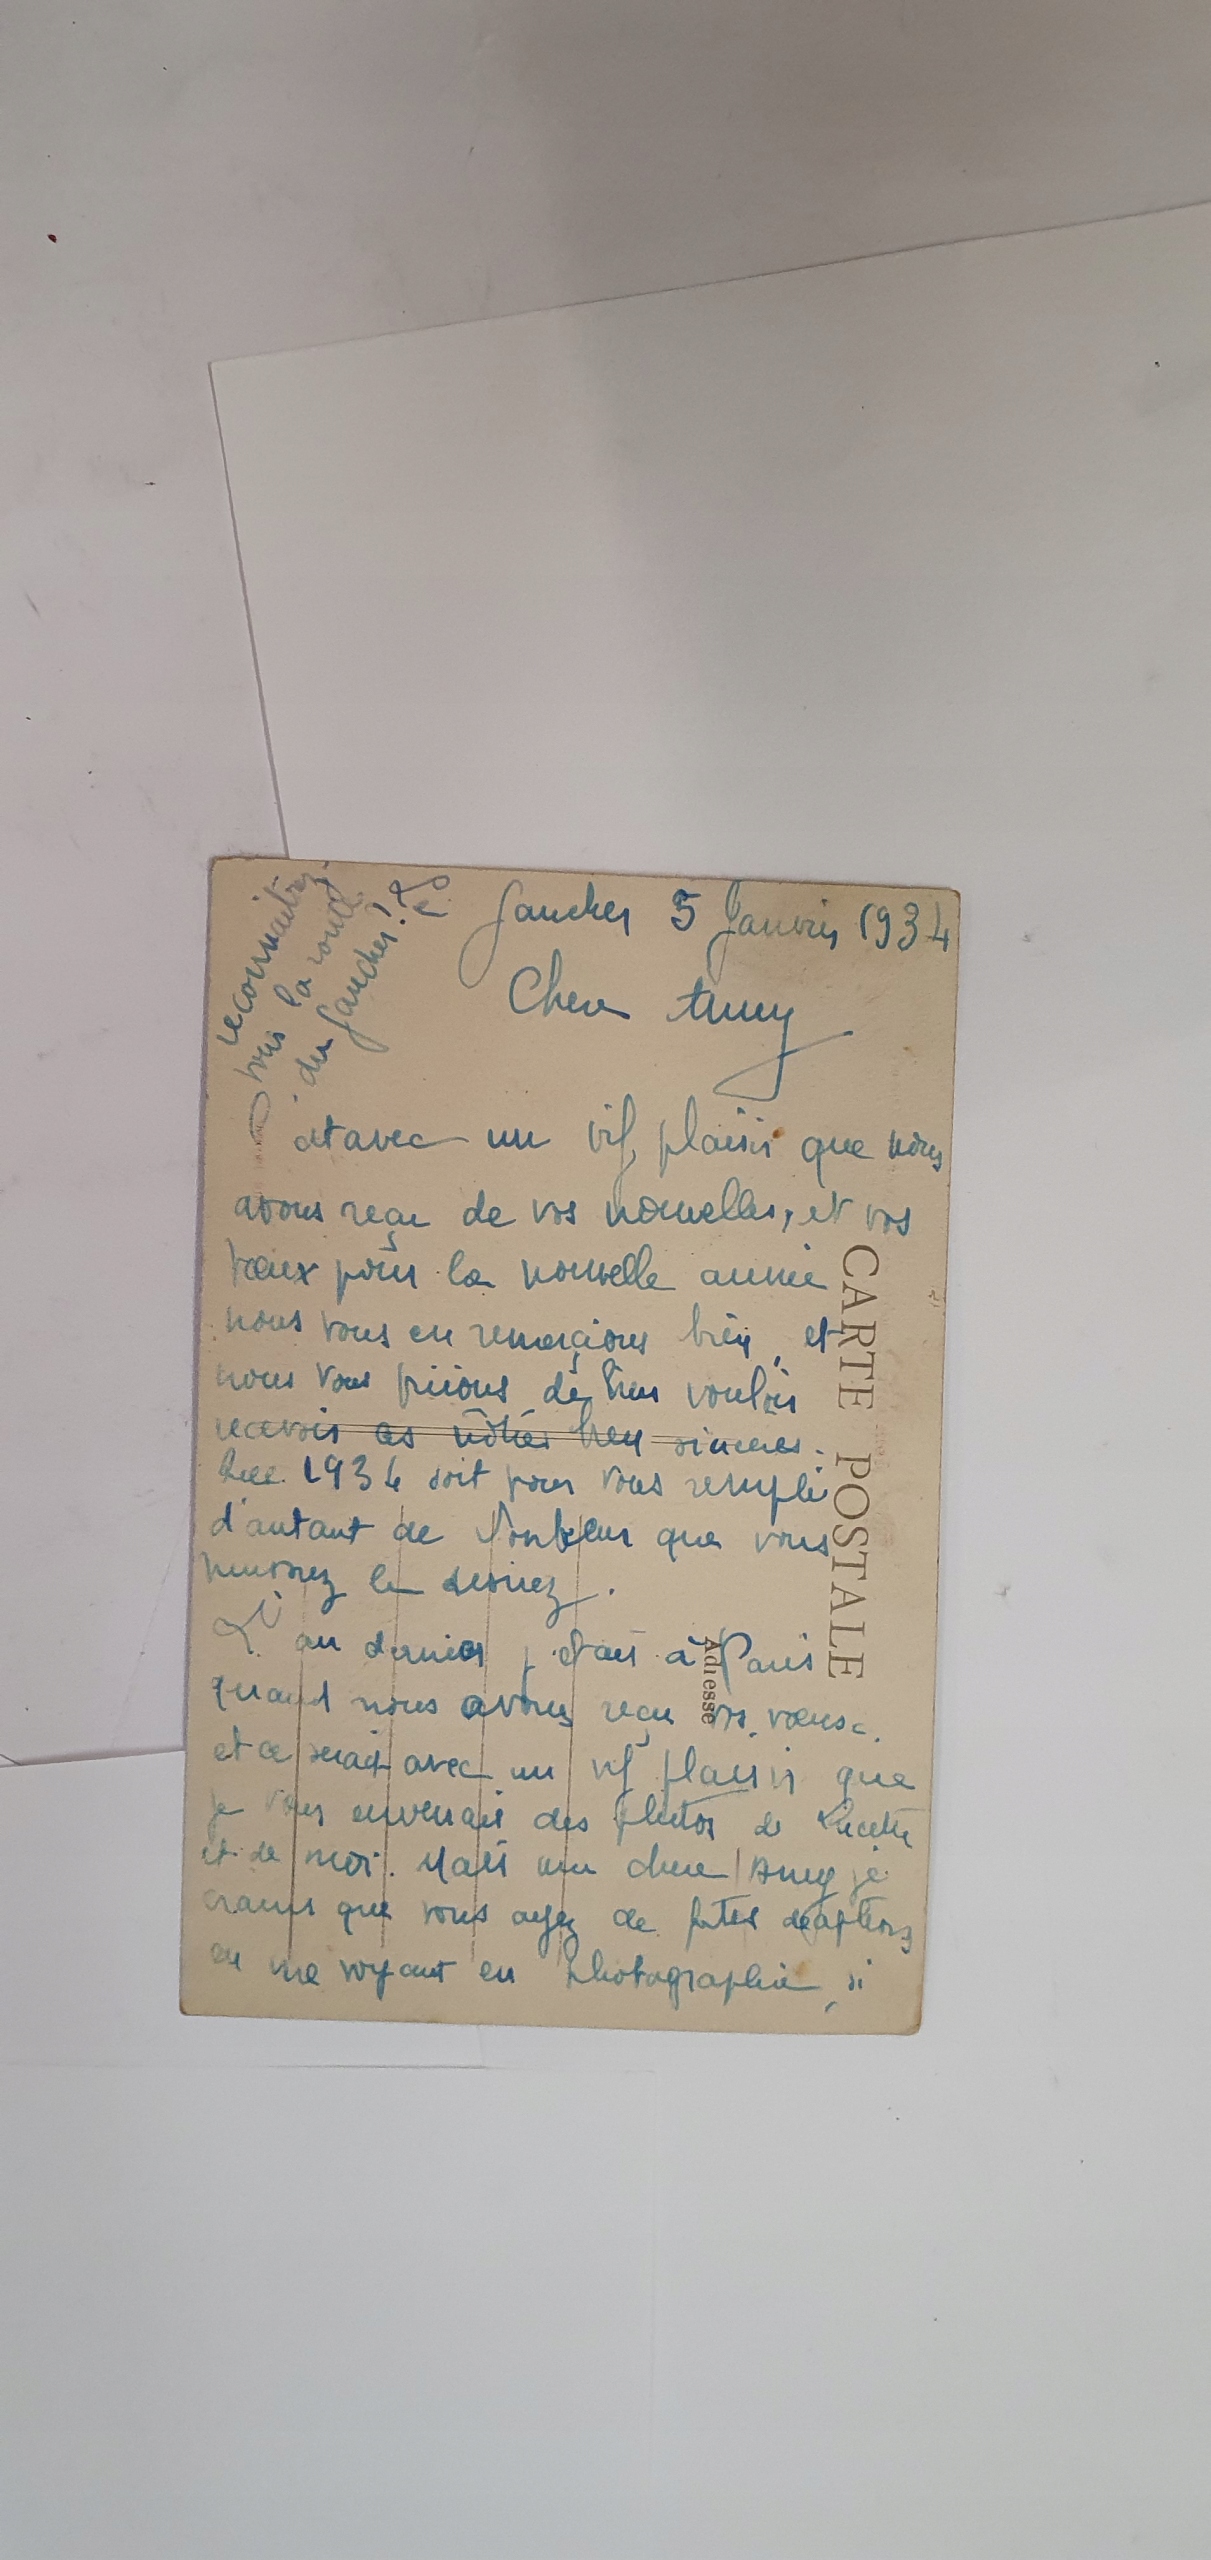 reconnaitrez
vous la route
du Jaucher!
Jaucher 5 Janvier 1934
Chere Anny
c'et avec un vif plaisir que nous
avons reçu de vos nouvelles, et vos
vœux pour la nouvelle année
nous vous en remerçions bien, et
nous vous priions de bien vouloir
recevoir les nôtres bien sinceres.
Que 1934 soit pour vous rempli
d'autant de bonheur que vous
pourrez le desirez.
L'an dernier j'étais à Paris
quand nous avons reçu vos vœux.
et ce serait avec un vif plaisir que
je vous enverrais des photos de Lucette
et de moi. Mais ma chere Anny je
crains que vous ayez de fortes deceptions
en me voyant en photographie, si
CARTE POSTALE
Adresse